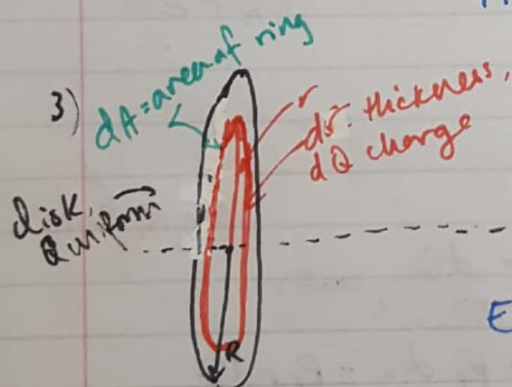 3)
dA = area of ring
r
dr thickness,
dQ charge
disk,
Q uniform
R
E